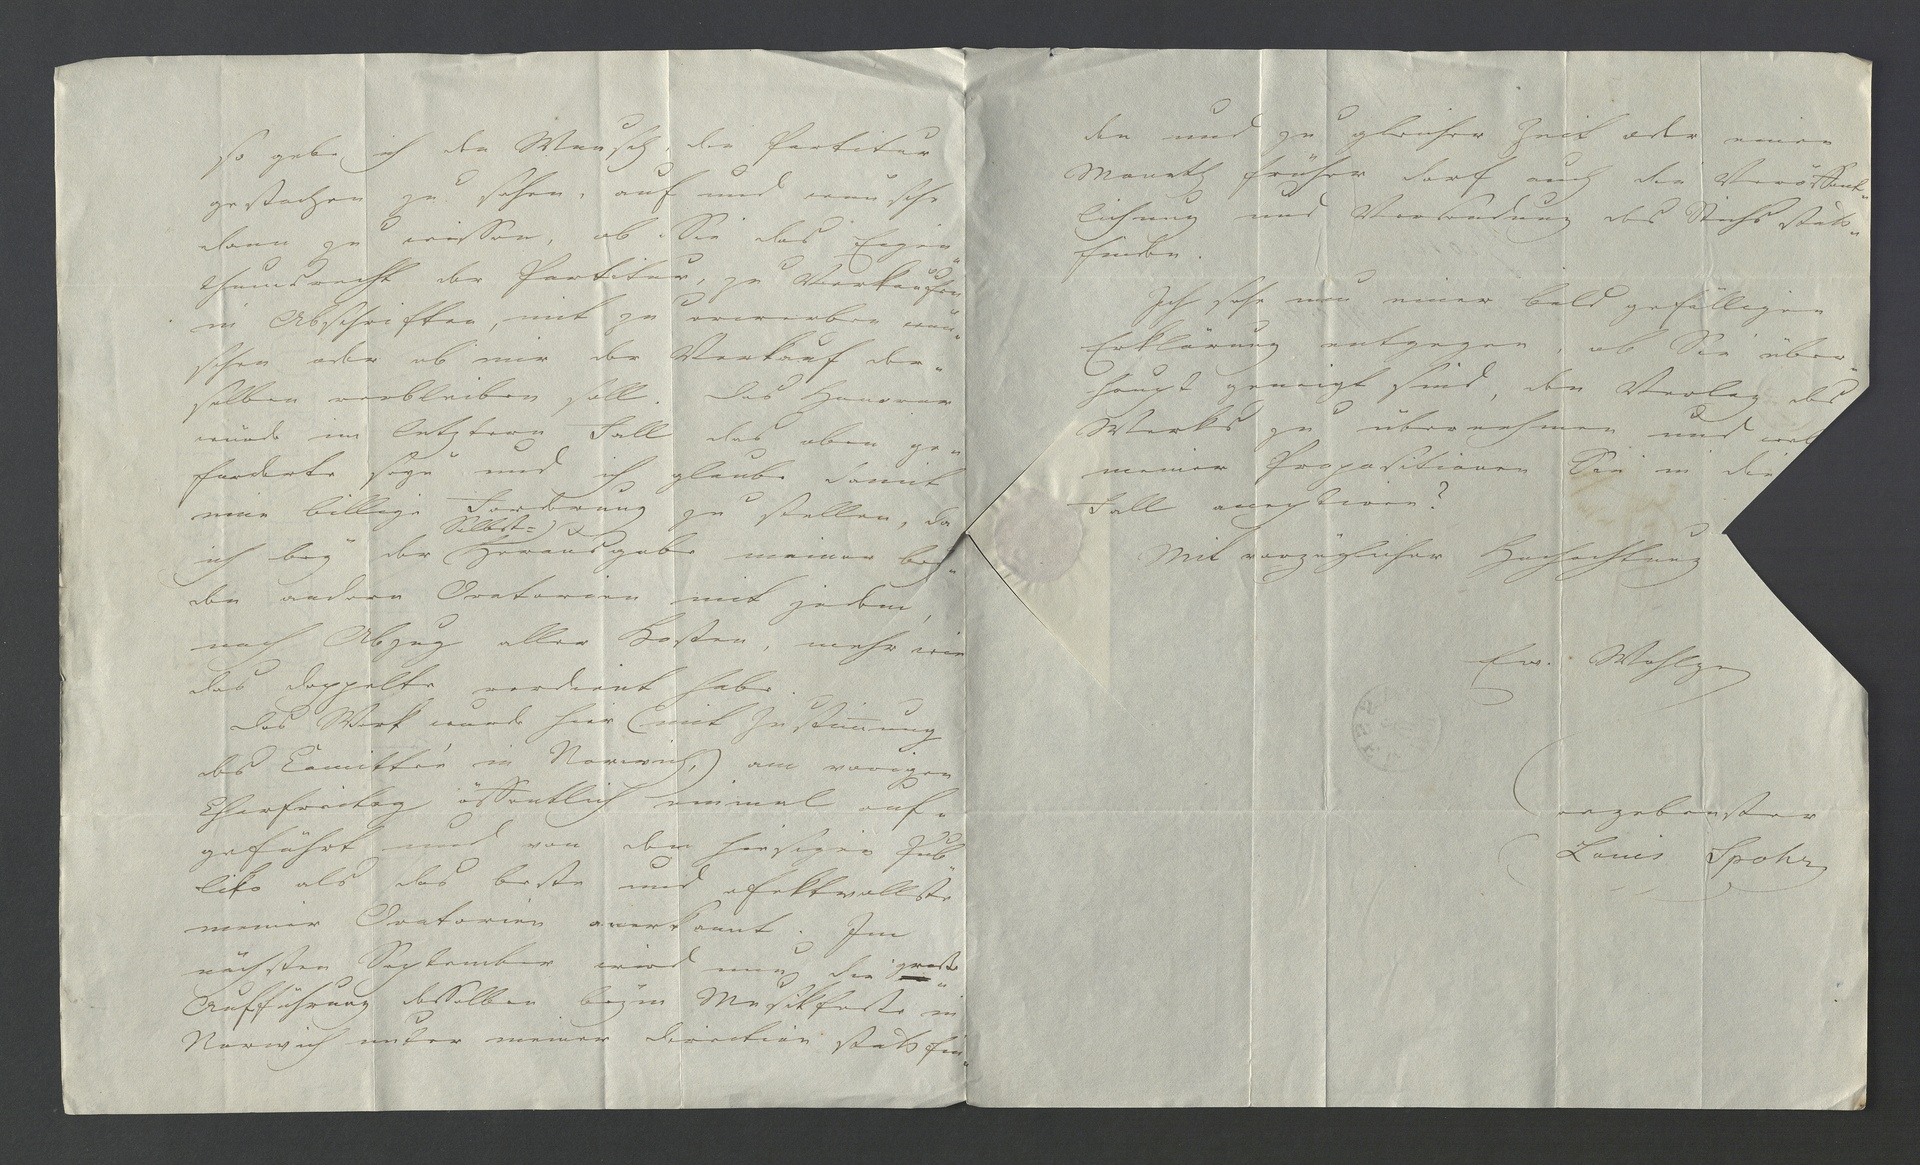 so gebe ich den Wunsch, die Partitur
gestochen zu sehen, auf und wünsche
dann zu wissen, ob Sie das Eigen„
thumsrecht der Partitur, zu Verkaufen
in Abschriften, mit zu erwerben wün„
schen oder ob mir der Verkauf der„
selben verbleiben soll. Das Honorar
würde im letztern Fall das oben ge„
forderte seyn und ich glaube damit
eine billige Forderung zu stellen, da
ich bey der Selbst-Herausgabe meiner bey„
den andern Oratorien mit jedem,
nach Abzug aller Kosten, mehr wie
das doppelte verdient habe.
Das Werk wurde hier (mit Zustimmung
des Comittée in Norwich,) am vorigen
Charfreitag öffentlich einmal auf„
geführt und von dem hiesigen Pub„
liko als das beste und effektvollste
meiner Oratorien anerkannt. Im
nächsten September wird nun die große
Aufführung desselben beym Musikfeste in
Norwich unter meiner Direction statt fin„
den und zu gleicher Zeit oder einen
Monath früher darf auch die Veröffent„
lichung und Versendung des Stichs statt„
finden.
Ich sehe nun einer bald gefälligen
Erklärung entgegen, ob Sie über„
haupt geneigt sind, den Verlag des
Werks zu übernehmen und
meiner Propositionen Sie in die
Fall
Mit vorzüglicher Hochachtung
Ew. Wohlgeb
ergebenster
Louis Spohr